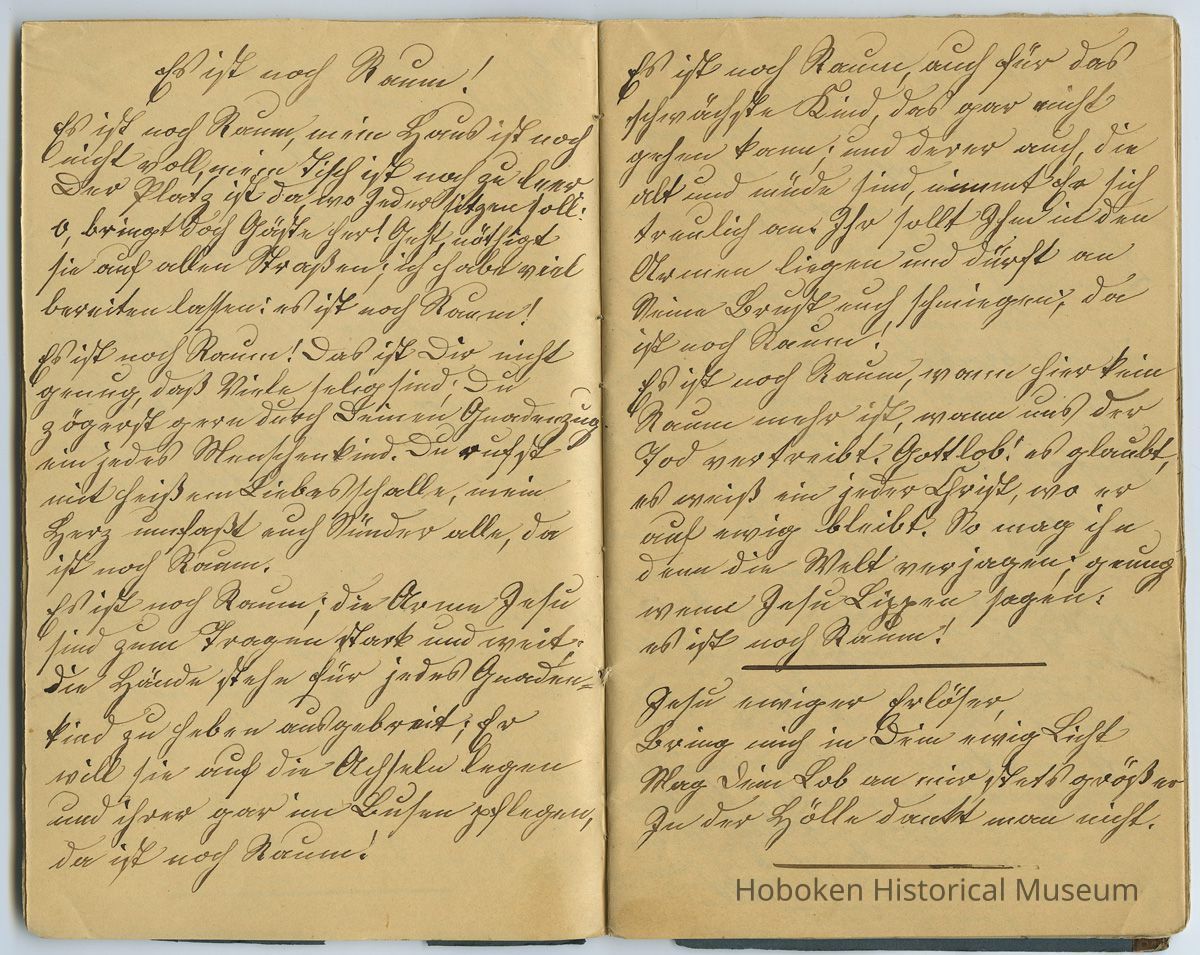 Es ist noch Raum!
Es ist noch Raum, mein Haus ist noch
nicht voll, mein Tisch ist noch zu leer
Der Platz ist da wo Jeder sitzen soll:
o, bringt doch Gäste her! Geht, nöthigt
sie auf allen Straßen; ich habe viel
bereiten lassen: es ist noch Raum!
Es ist noch Raum! Das ist Dir nicht
genug, daß Viele selig sind; Du
zögerst gern durch Deinen Gnadenzug
ein jedes Menschenkind. Du rufst
mit heißem Liebesschalle, mein
Herz umfaßt euch Sünder alle, da
ist noch Raum.
Es ist noch Raum; die Arme Jesu
sind zum Tragen stark und weit;
die Hände stehe für jedes Gnaden=
kind zu heben ausgebreit; Er
will sie auf die Achseln legen
und ihrer gar im Busen pflegen,
da ist noch Raum!
Es ist noch Raum, auch für das
schwächste Kind, das gar nicht
gehen kann; und derer auch, die
alt und müde sind, nimmt Er sich
treulich an. Ihr sollt Ihm in den
Armen liegen und dürft an
Seine Brust euch schmiegen; da
ist noch Raum!
Es ist noch Raum, wann hier kein
Raum mehr ist, wann uns der
Tod vertreibt. Gottlob! es glaubt,
es weiß ein jeder Christ, wo er
auf ewig bleibt. So mag ihn
denn die Welt verjagen; genug
wenn Jesu Lippen sagen:
es ist noch Raum!
Jesu ewiger Erlöser,
Bring mich in Dein ewig Licht
Mag Dein Lob an mir stets größer
In der Hölle dankt man nicht.
Hoboken Historical Museum